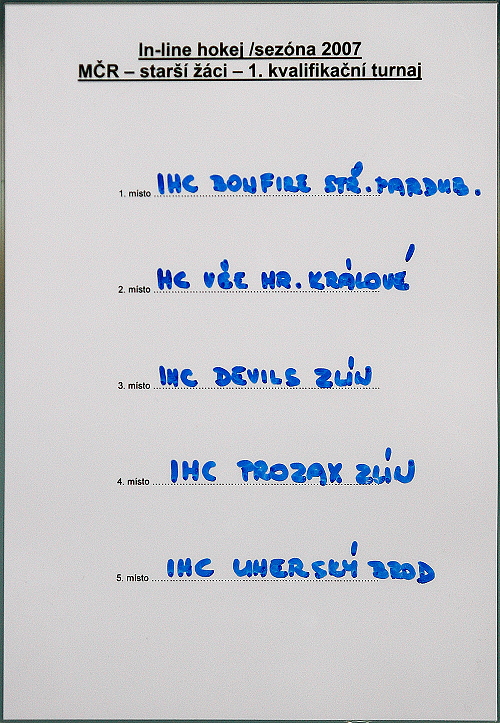 In-line hokej /sezóna 2007
MČR – starší žáci – 1. kvalifikační turnaj
1. místo IHC BONFIRE STŘ. PARDUB.
2. místo HC VČE HR. KRÁLOVÉ
3. místo IHC DEVILS ZLÍN
4. místo IHC PROZAX ZLÍN
5. místo IHC UHERSKÝ BROD